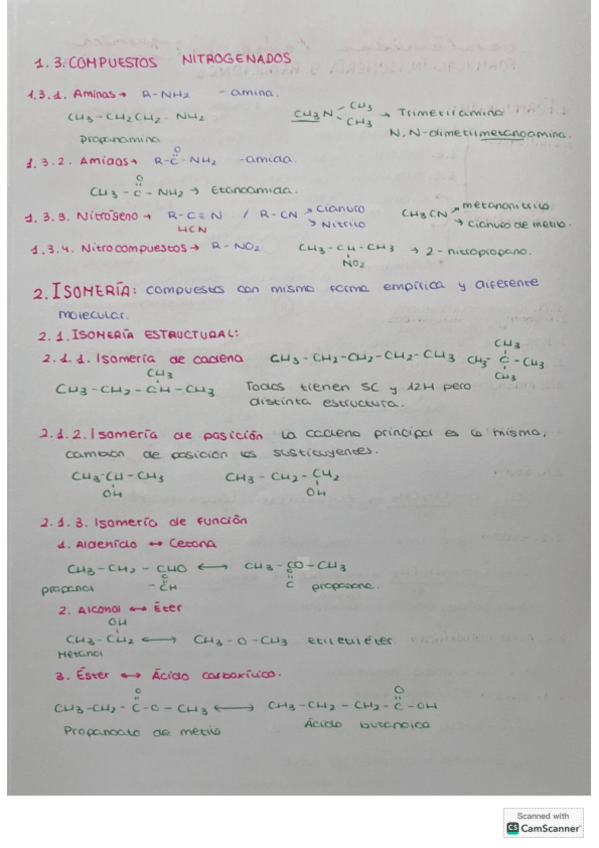 1.3. COMPUESTOS NITROGENADOS
1.3.1. Aminas → R-NH2 -amina.
CH3-CH2CH2-NH2 CH3N CH3 CH3 → Trimetilamina
propanamina N,N-dimetilmetanoamina.
1.3.2. Amidas → R-C-NH2 -amida.
O
CH3-C-NH2 → Etanoamida.
O
1.3.3. Nitrógeno → R-C≡N / R-CN → cianuro CH3CN → metanonitrilo
HCN → Nitrilo → cianuro de metilo.
1.3.4. Nitrocompuestos → R-NO2 CH3-CH-CH3 → 2-nitropropano.
NO2
2. ISOMERÍA: compuestos con misma forma empírica y diferente
molecular.
2.1. ISOMERÍA ESTRUCTURAL:
2.1.1. Isomería de cadena CH3-CH2-CH2-CH2-CH3 CH3-C-CH3
CH3 CH3
CH3-CH2-CH-CH3 Todos tienen 5C y 12H pero
CH3 distinta estructura.
2.1.2. Isomería de posición La cadena principal es la misma,
cambian de posición los sustituyentes.
CH3-CH-CH3 CH3-CH2-CH2
OH OH
2.1.3. Isomería de función
1. Aldehído ↔ Cetona
CH3-CH2-CHO ⟷ CH3-CO-CH3
propanal -CH C propanona.
2. Alcohol ↔ Éter
OH
CH3-CH2 ⟷ CH3-O-CH3 etiletiléter.
Metanol
3. Éster ↔ Ácido carboxílico.
O O
CH3-CH2-C-O-CH3 ⟷ CH3-CH2-CH2-C-OH
Propanoato de metilo Ácido butanoico
Scanned with
CS CamScanner